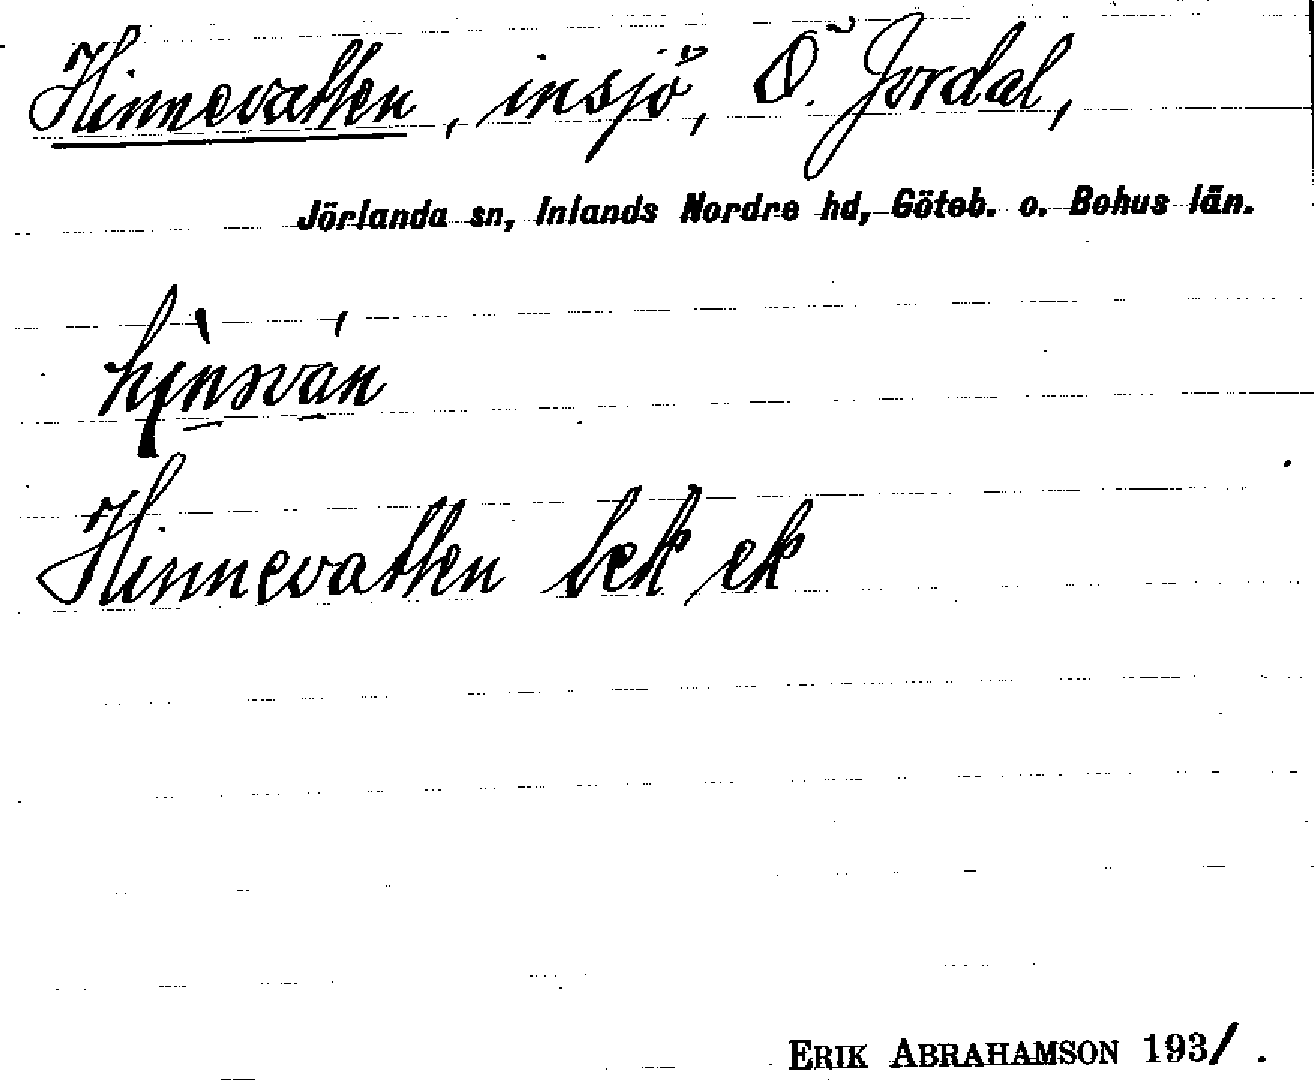 Hinnevatten, insjö, Ö. Jordal,
Jörlanda sn, Inlands Nordre hd, Göteb. o. Bohus län.
Hinnevatten bek ek
ERIK ABRAHAMSON 1931.